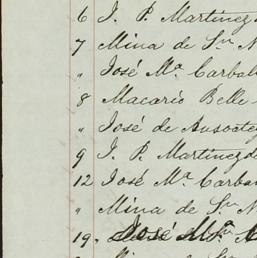 6 J. P. Martinez d
7 Mina de Sn N
" José Ma. Carbal
8 Macario Belle
" José de Ausoateg
9 J. P. Martinez de
12 José Ma. Carba
" Mina de Sn N
19. José Ma.